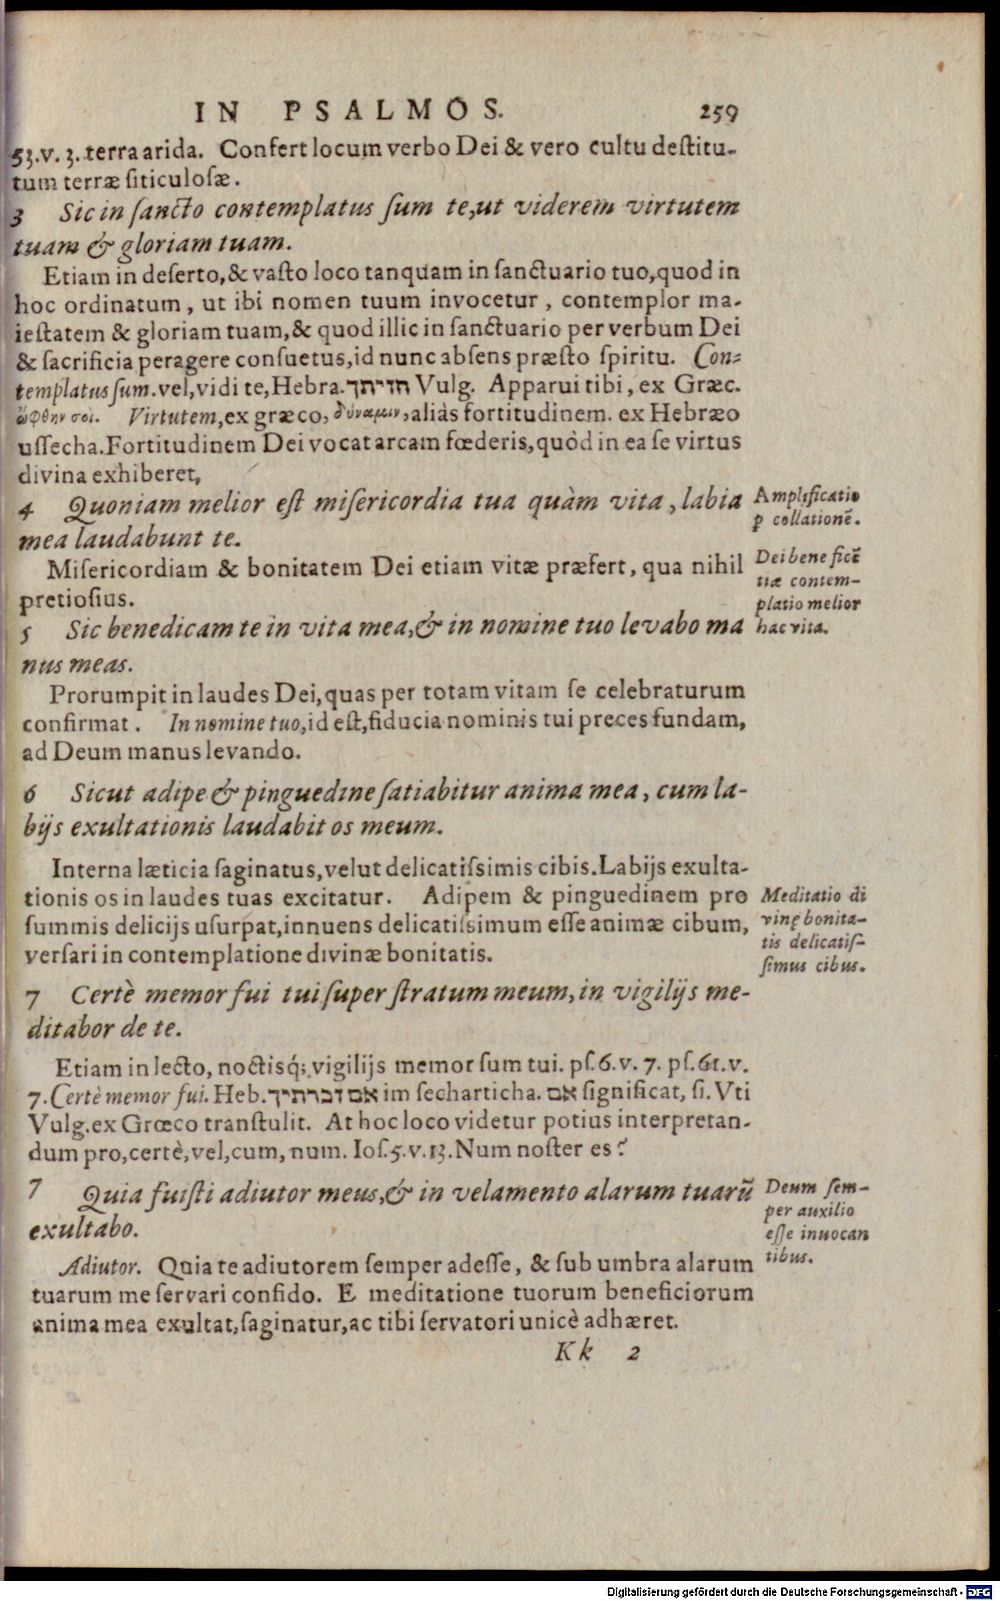 IN PSALMOS. 259
53.v. 3. terra arida. Confert locum verbo Dei & vero cultu destitu-
tum terræ siticulosæ.
3 Sic in sancto contemplatus sum te, ut viderem virtutem
tuam & gloriam tuam.
Etiam in deserto, & vasto loco tanquam in sanctuario tuo, quod in
hoc ordinatum, ut ibi nomen tuum invocetur, contemplor ma-
iestatem & gloriam tuam, & quod illic in sanctuario per verbum Dei
& sacrificia peragere consuetus, id nunc absens præsto spiritu. Con-
templatus sum. vel, vidi te, Hebra. חזיתך Vulg. Apparui tibi, ex Græc.
ὤφθην σοι. Virtutem, ex græco, δύναμιν, aliàs fortitudinem. ex Hebræo
ussecha. Fortitudinem Dei vocat arcam fœderis, quòd in ea se virtus
divina exhiberet,
4 Quoniam melior est misericordia tua quàm vita, labia
mea laudabunt te.
Amplificatio
p collationē.
Misericordiam & bonitatem Dei etiam vitæ præfert, qua nihil
pretiosius.
Dei beneficē
tiæ contem-
platio melior
hac vita.
5 Sic benedicam te in vita mea, & in nomine tuo levabo ma
nus meas.
Prorumpit in laudes Dei, quas per totam vitam se celebraturum
confirmat. In nomine tuo, id est, fiducia nominis tui preces fundam,
ad Deum manus levando.
6 Sicut adipe & pinguedine satiabitur anima mea, cum la-
bijs exultationis laudabit os meum.
Interna læticia saginatus, velut delicatissimis cibis. Labijs exulta-
tionis os in laudes tuas excitatur. Adipem & pinguedinem pro
summis delicijs usurpat, innuens delicatissimum esse animæ cibum,
versari in contemplatione divinæ bonitatis.
Meditatio di
vinę bonita-
tis delicatis-
simus cibus.
7 Certè memor fui tui super stratum meum, in vigilijs me-
ditabor de te.
Etiam in lecto, noctisq́; vigilijs memor sum tui. ps. 6. v. 7. ps. 61. v.
7. Certè memor fui. Heb. אם זכרתיך im secharticha. אם significat, si. Vti
Vulg. ex Græco transtulit. At hoc loco videtur potius interpretan-
dum pro, certè, vel, cum, num. Ios. 5. v. 13. Num noster es?
7 Quia fuisti adiutor meus, & in velamento alarum tuarū
exultabo.
Deum sem-
per auxilio
esse inuocan
tibus.
Adiutor. Quia te adiutorem semper adesse, & sub umbra alarum
tuarum me servari confido. E meditatione tuorum beneficiorum
anima mea exultat, saginatur, ac tibi servatori unicè adhæret.
Kk 2
Digitalisierung gefördert durch die Deutsche Forschungsgemeinschaft - DFG